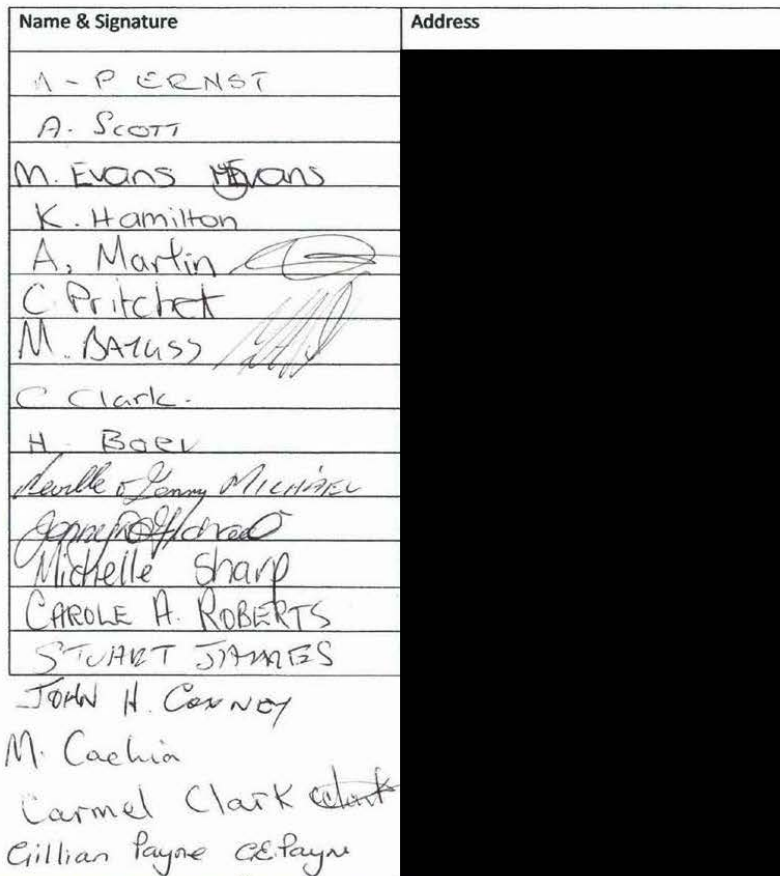 Name & Signature Address
A - P ERNST
A. SCOTT
M. Evans MEvans
K. Hamilton
A, Martin
C Pritchet
M. BAYLISS
C Clark.
H. Boer
Neville & Jenny MICHAEL
Michelle Sharp
CAROLE A. ROBERTS
STUART JAMES
JOHN H.
M. Cachia
Carmel Clark CClark
Gillian Payne GEPayne